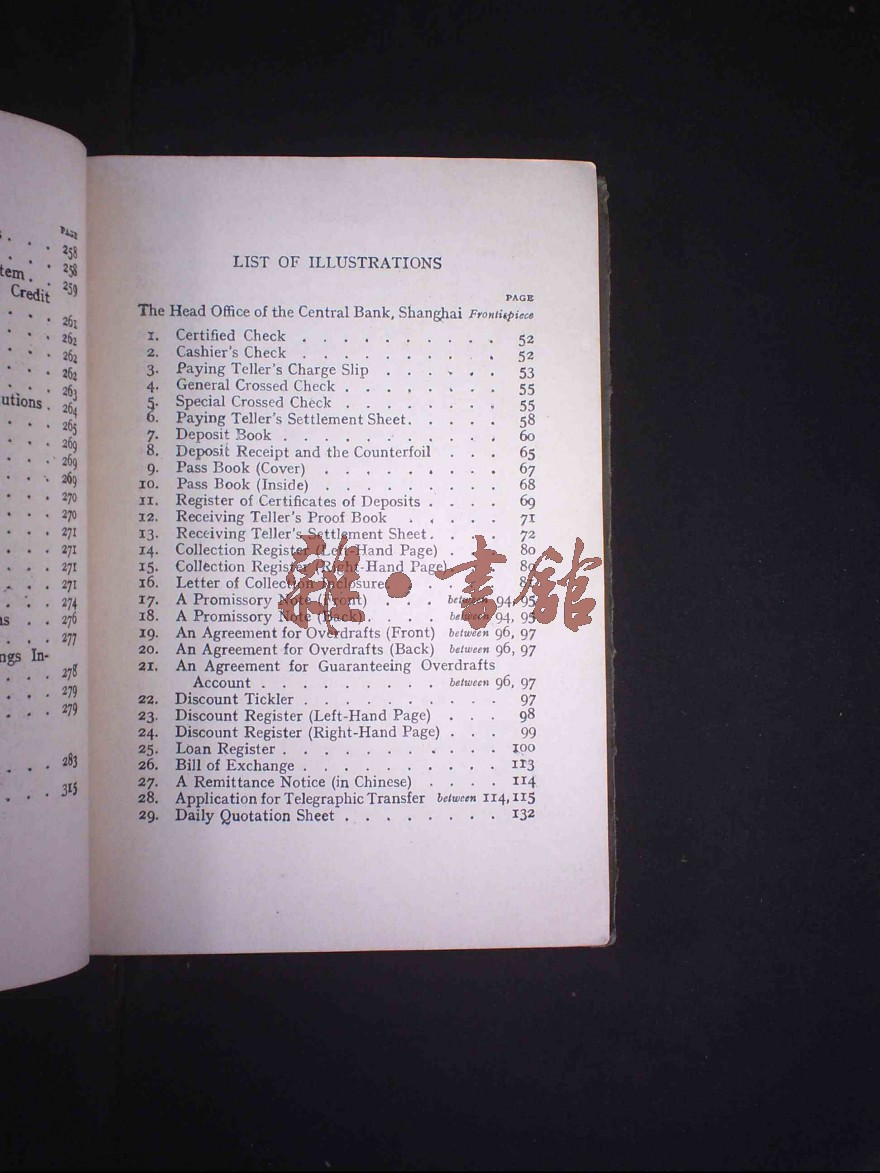 PAGE
258
258
tem.
Credit
259
261
262
262
262
263
utions . 264
265
269
269
269
270
270
271
271
271
271
274
276
277
ngs In-
278
279
279
283
315
LIST OF ILLUSTRATIONS
PAGE
The Head Office of the Central Bank, Shanghai Frontispiece
1. Certified Check . . . . . . . . . . 52
2. Cashier's Check . . . . . . . . . . 52
3. Paying Teller's Charge Slip . . . . . . 53
4. General Crossed Check . . . . . . . . 55
5. Special Crossed Check . . . . . . . . 55
6. Paying Teller's Settlement Sheet . . . . . 58
7. Deposit Book . . . . . . . . . . . 60
8. Deposit Receipt and the Counterfoil . . . 65
9. Pass Book (Cover) . . . . . . . . . 67
10. Pass Book (Inside) . . . . . . . . . 68
11. Register of Certificates of Deposits . . . . 69
12. Receiving Teller's Proof Book . . . . . 71
13. Receiving Teller's Settlement Sheet . . . . 72
14. Collection Register (Left-Hand Page) . . . 80
15. Collection Register (Right-Hand Page) . . . 80
16. Letter of Collection Inclosures . . . . . 81
17. A Promissory Note (Front) . . . . between 94, 95
18. A Promissory Note (Back) . . . . between 94, 95
19. An Agreement for Overdrafts (Front) between 96, 97
20. An Agreement for Overdrafts (Back) between 96, 97
21. An Agreement for Guaranteeing Overdrafts
Account . . . . . . . . . between 96, 97
22. Discount Tickler . . . . . . . . . . 97
23. Discount Register (Left-Hand Page) . . . 98
24. Discount Register (Right-Hand Page) . . . 99
25. Loan Register . . . . . . . . . . . 100
26. Bill of Exchange . . . . . . . . . . 113
27. A Remittance Notice (in Chinese) . . . . 114
28. Application for Telegraphic Transfer between 114, 115
29. Daily Quotation Sheet . . . . . . . . 132
雜·書館